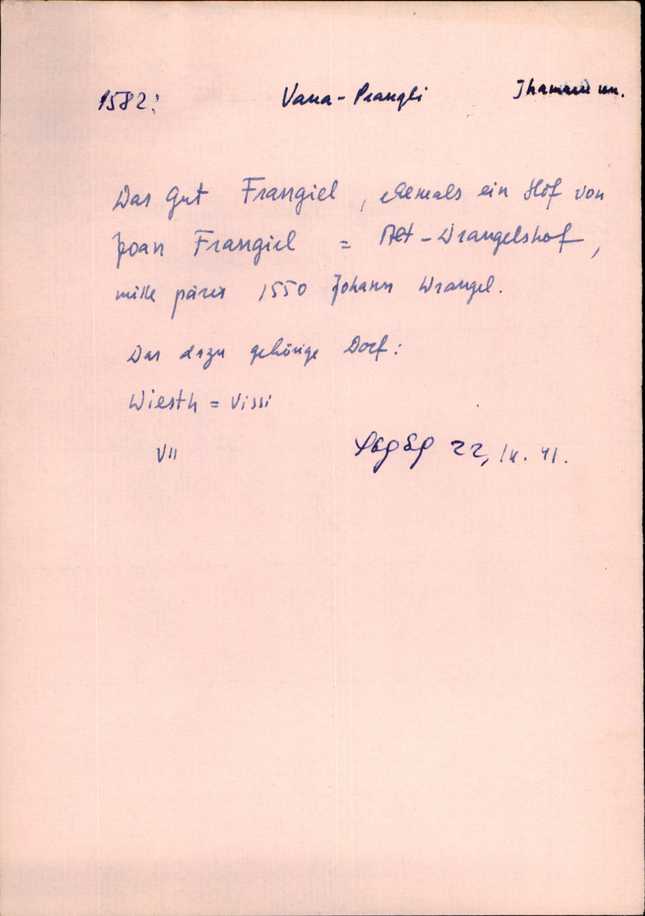 1582: Vana-Prangli Ihamaru vm.
Das Gut Frangiel, ehemals ein Hof von
Joan Frangiel = Alt-Wrangelshof,
mille päris 1550 Johann Wrangel.
Das dazu gehörige Dorf:
Wiesth = Vissi
VII 22, 41.